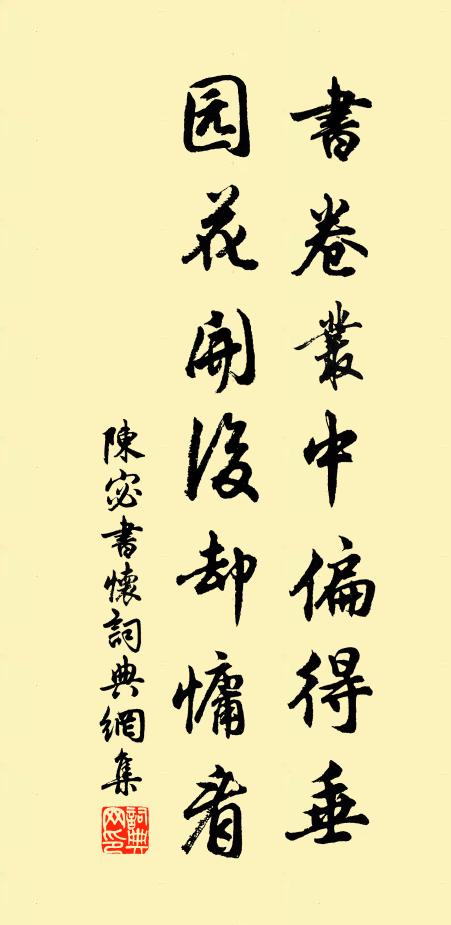 書卷叢中偏得垂
园花開後却慵看
陳宓書懷詞典網集
詞典网印